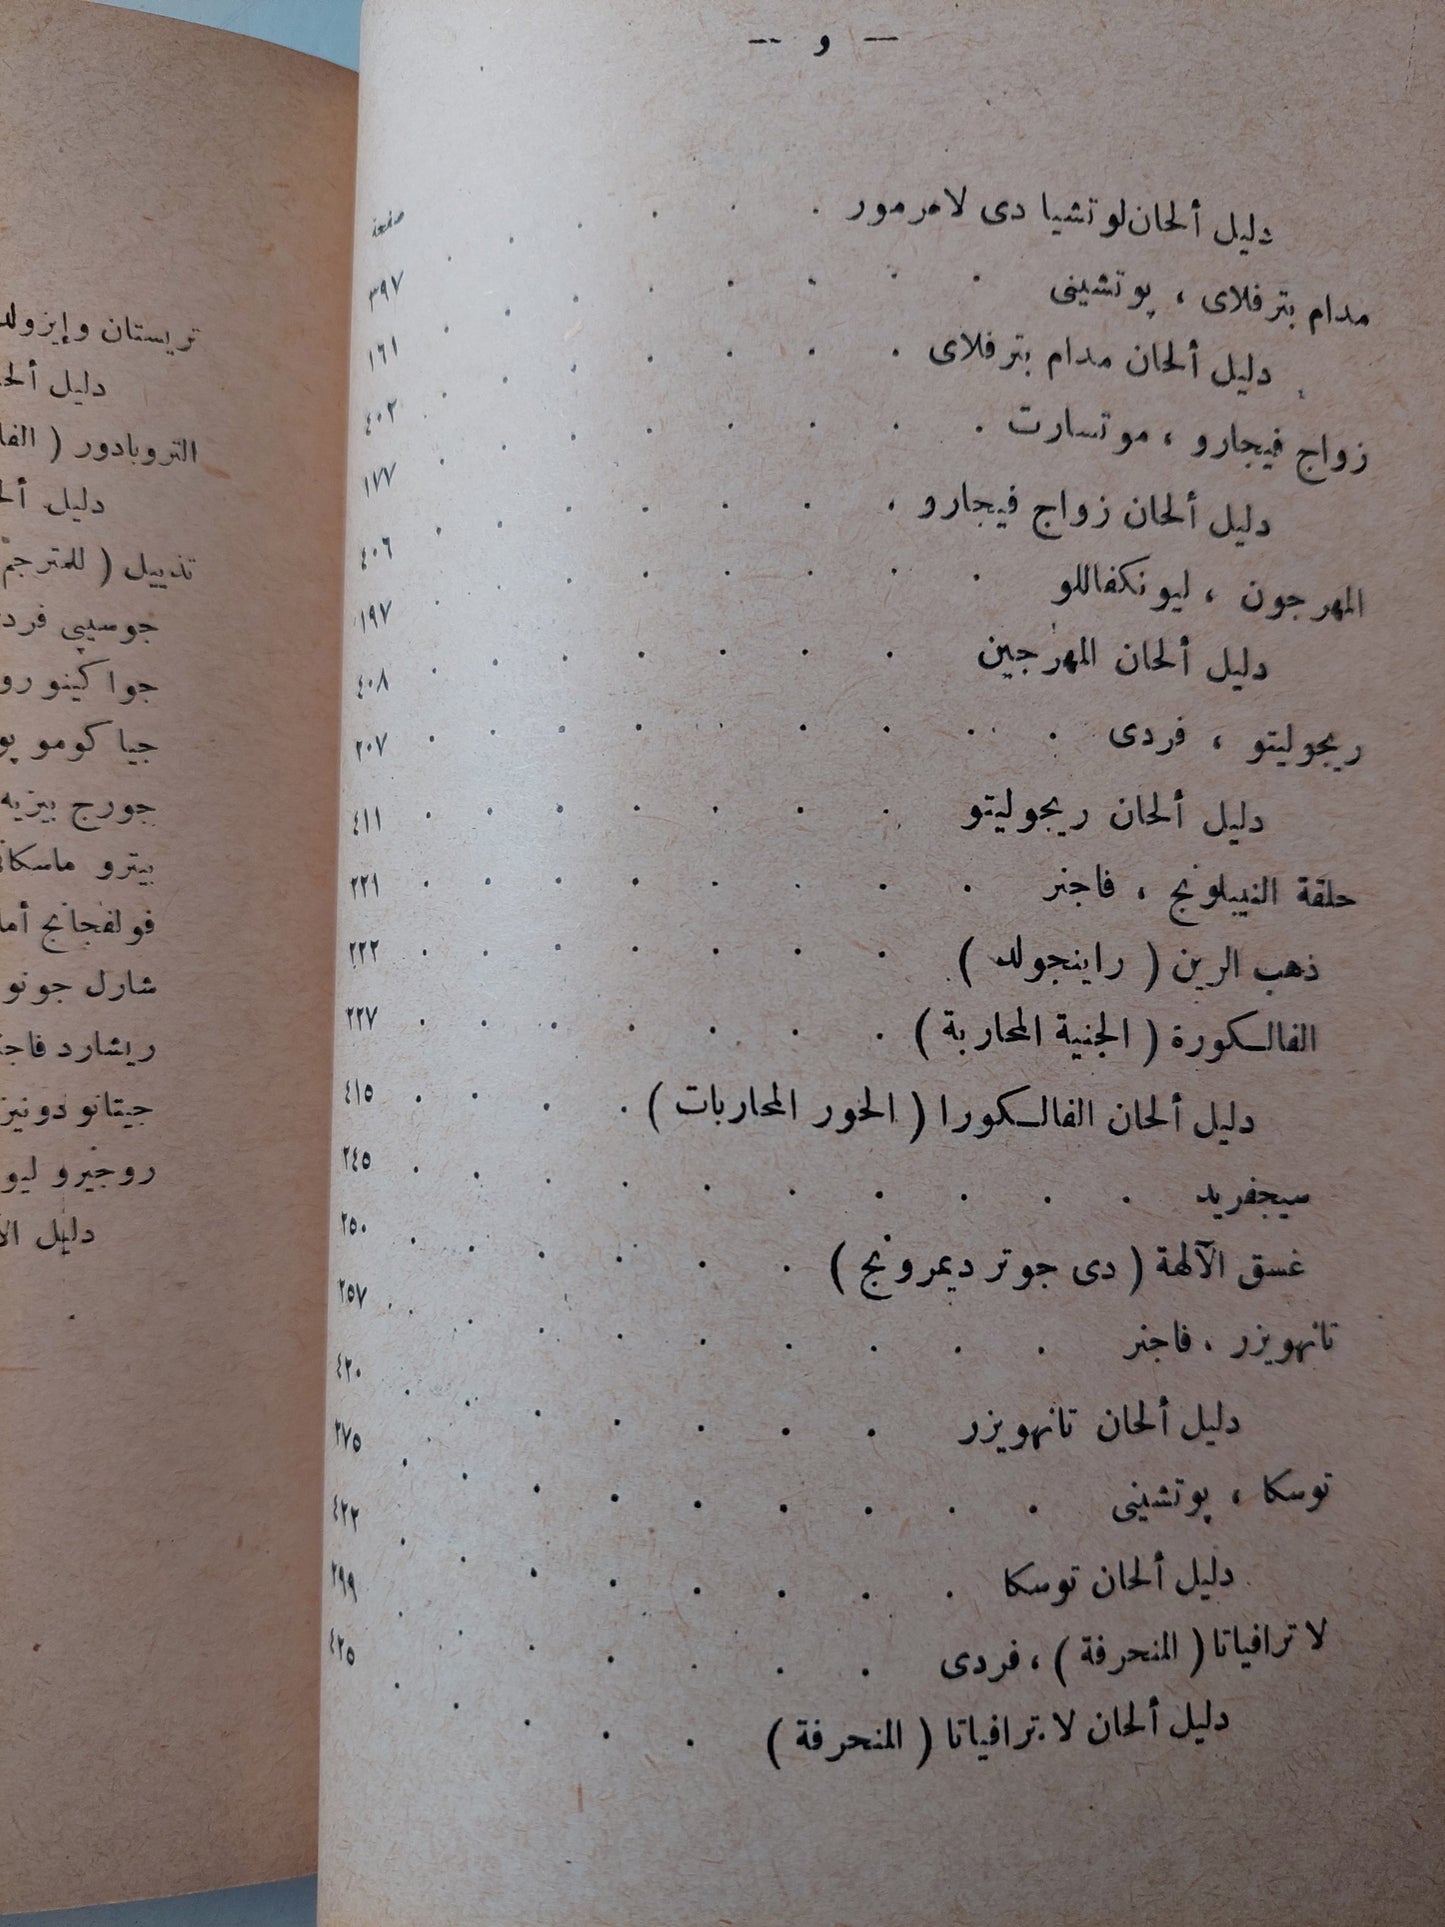 — و —
صفحة
دليل ألحان لوتشيا دى لامرمور . . . . . . ٣٩٧
مدام بترفلاى ، پوتشينى . . . . . . . . ١٦١
دليل ألحان مدام بترفلاى . . . . . . . ٤٠٢
زواج فيجارو ، موتسارت . . . . . . . . ١٧٧
دليل ألحان زواج فيجارو . . . . . . . ٤٠٦
المهرجون ، ليونكفاللو . . . . . . . . ١٩٧
دليل ألحان المهرجين . . . . . . . ٤٠٨
ريجوليتو ، فردى . . . . . . . . . ٢٠٧
دليل ألحان ريجوليتو . . . . . . . ٤١١
حلقة النيبلونج ، فاجنر . . . . . . . . ٢٢١
ذهب الرين ( راينجولد ) . . . . . . . ٢٢٢
الفالكورة ( الجنية المحاربة ) . . . . . . . ٢٢٧
دليل ألحان الفالكورا ( الحور المحاربات ) . . . . ٤١٥
سيجفريد . . . . . . . . . . ٢٤٥
غسق الآلهة ( دى جوتر ديمرونج ) . . . . . . ٢٥٠
تانهويزر ، فاجنر . . . . . . . . . ٢٥٧
دليل ألحان تانهويزر . . . . . . . ٤٢٠
توسكا ، پوتشينى . . . . . . . . . ٢٧٥
دليل ألحان توسكا . . . . . . . . ٤٢٢
لا ترافياتا ( المنحرفة ) ، فردى . . . . . . ٢٩٩
دليل ألحان لا ترافياتا ( المنحرفة ) . . . . . ٤٢٥
تريستان وإيزولد
دليل
التروبادور (
دليل
تذييل ( للمترجم
جوسيپي
جواكينو
جياكومو
جورج بيزيه
بيترو
فولفجانج
شارل جونو
ريشارد
جيتانو
روجيرو
دليل